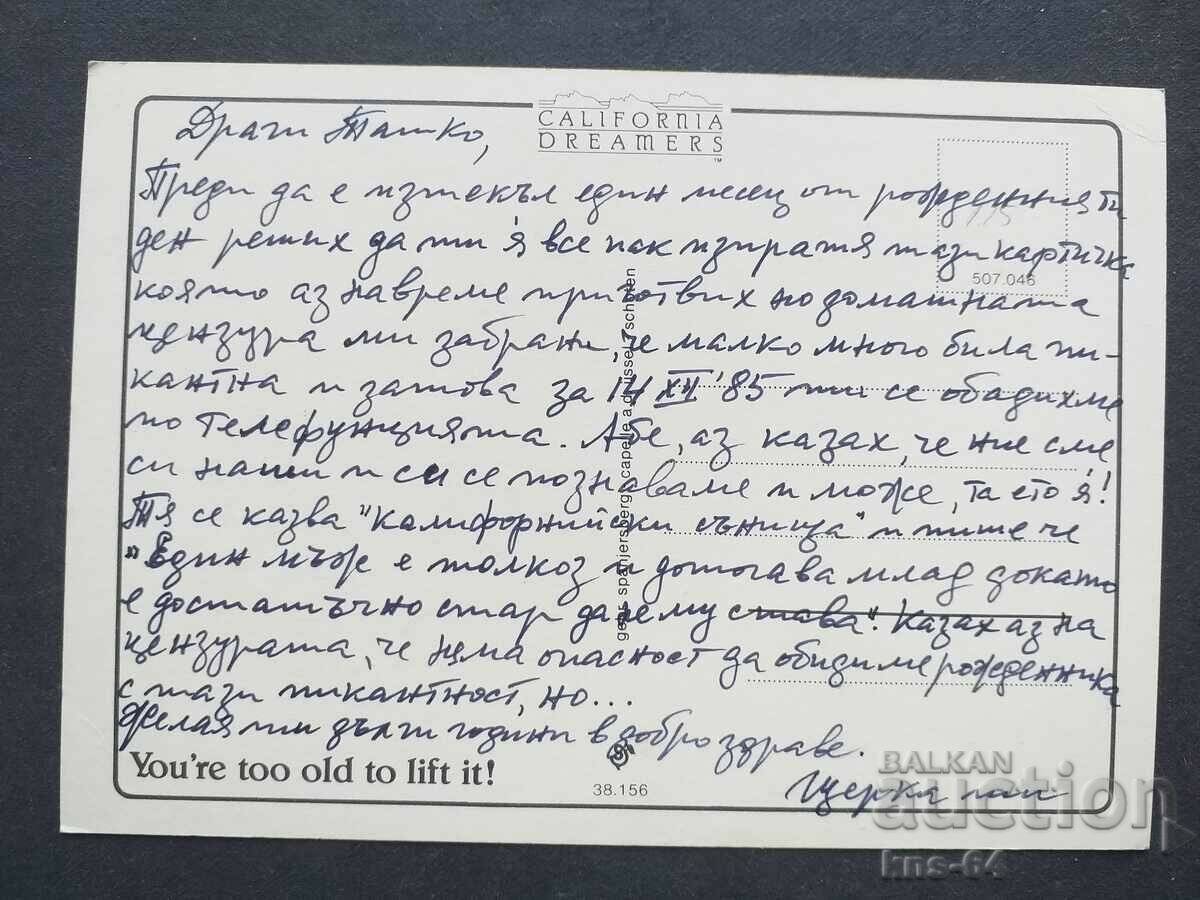 CALIFORNIA
DREAMERS
TM
Драги Ташко,
Преди да е изтекъл един месец от рождения ти
ден реших да ти я все пак изпратя тази картичка
която аз навреме приготвих но домашната
цензура ми забрани, че малко много била пи-
кантна и затова за 14 XII '85 ти се обадихме
по телефунцията. Абе, аз казах, че ние сме
си наши и си се познаваме и може, та ето я!
Тя се казва "Калифорнийски сънища" и пише че
"Един мъж е толкоз и дотогава млад докато
е достатъчно стар да не му става". Казах аз на
цензурата, че няма опасност да обидиме рожденника
с тази пикантност, но...
Желая ти дълги години в добро здраве.
Щерка
507.046
spanjersberg capelle a.d. ijssel
You're too old to lift it!
38.156
BALKAN
auction
kns-64